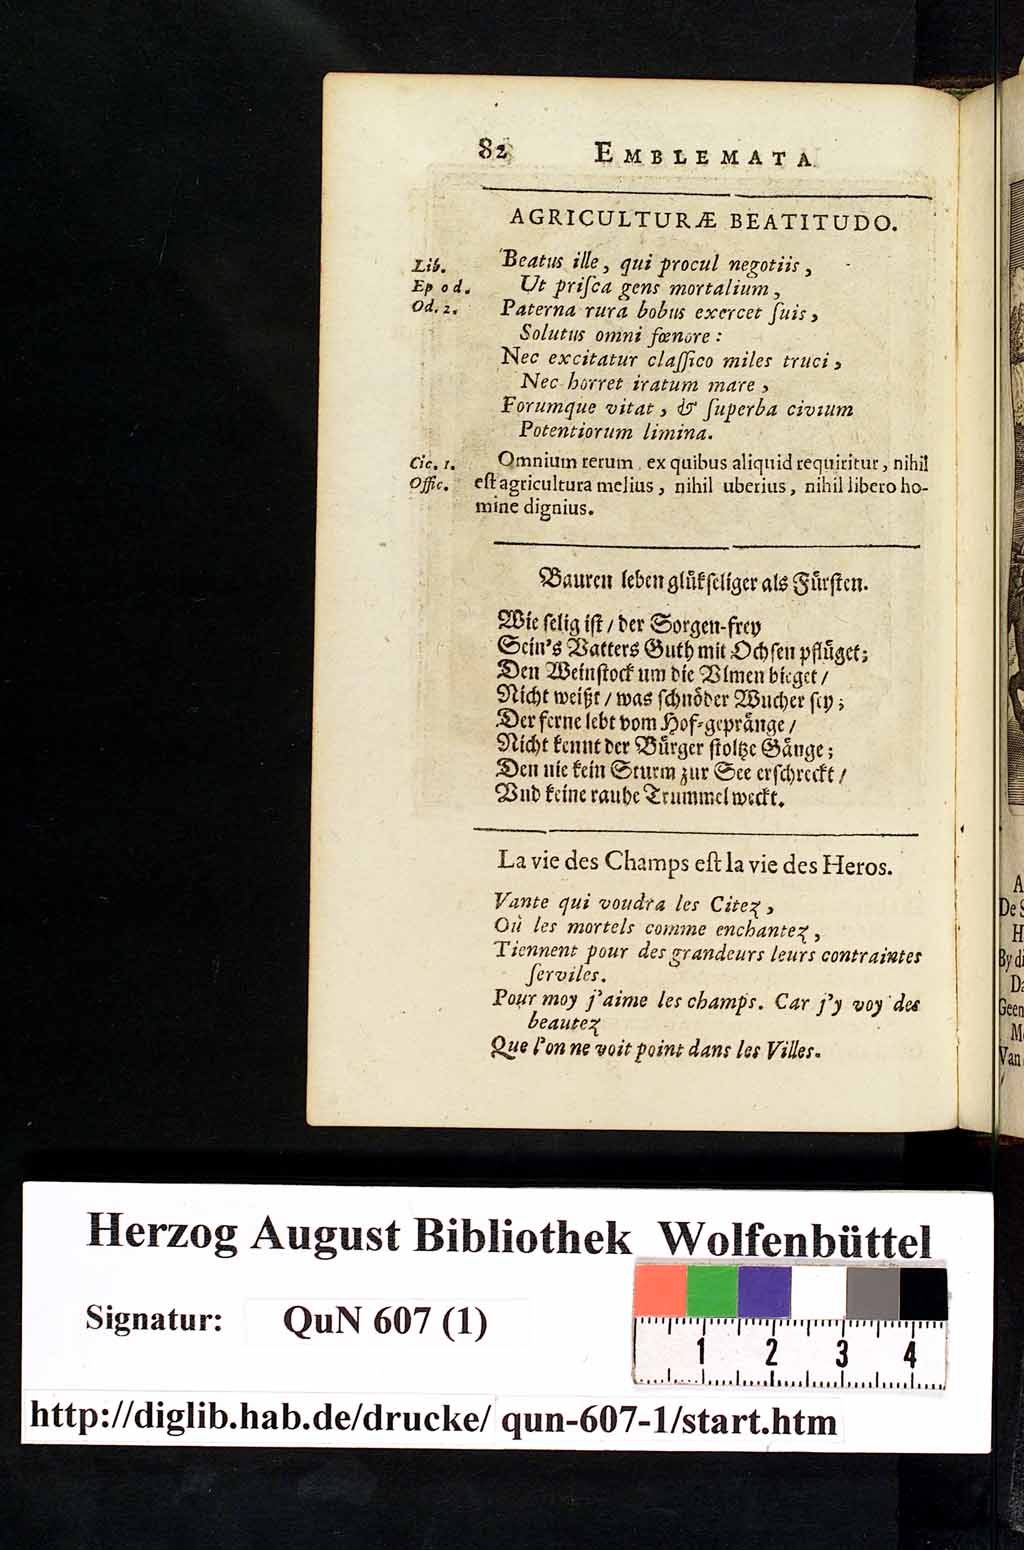 82 EMBLEMATA
AGRICULTURÆ BEATITUDO.
Lib.
Epod.
Od. 2.
Beatus ille, qui procul negotiis,
Ut priſca gens mortalium,
Paterna rura bobus exercet ſuis,
Solutus omni fœnore:
Nec excitatur claſſico miles truci,
Nec horret iratum mare,
Forumque vitat, & ſuperba civium
Potentiorum limina.
Cic. 1.
Offic.
Omnium rerum ex quibus aliquid requiritur, nihil
eſt agricultura melius, nihil uberius, nihil libero ho-
mine dignius.
Bauren leben glükſeliger als Fürſten.
Wie ſelig iſt / der Sorgen-frey
Sein's Vatters Guth mit Ochſen pflüget;
Den Weinſtock um die Vlmen bieget /
Nicht weißt / was ſchnöder Wucher ſey;
Der ferne lebt vom Hof-gepränge /
Nicht kennt der Bürger ſtoltze Gänge;
Den nie kein Sturm zur See erſchreckt /
Vnd keine rauhe Trummel weckt.
La vie des Champs eſt la vie des Heros.
Vante qui voudra les Citez,
Où les mortels comme enchantez,
Tiennent pour des grandeurs leurs contraintes
ſerviles.
Pour moy j'aime les champs. Car j'y voy des
beautez
Que l'on ne voit point dans les Villes.
A
De S
H
By di
Da
Geen
M
Van
Herzog August Bibliothek Wolfenbüttel
Signatur: QuN 607 (1)
1 2 3 4
http://diglib.hab.de/drucke/ qun-607-1/start.htm